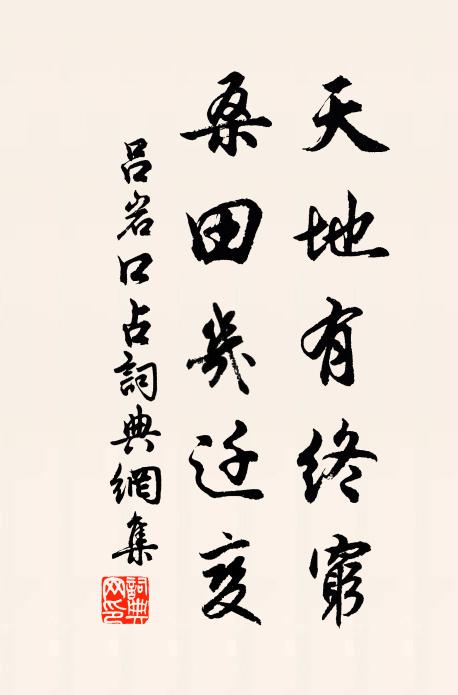 天地有終窮
桑田幾迁变
吕岩口占詞典網集
詞典网印